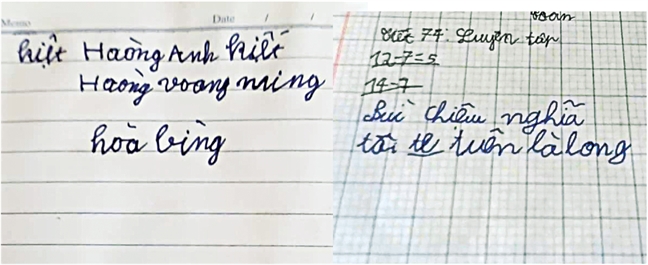 Date / /
kiệt Haòng Anh kiệt
Haòng voang ming
hòa bìng
toán
tiết 74: Luyện tập
12-7=5
14-7
Buỉ chiều nghĩa
tôi tẹ tuên là long